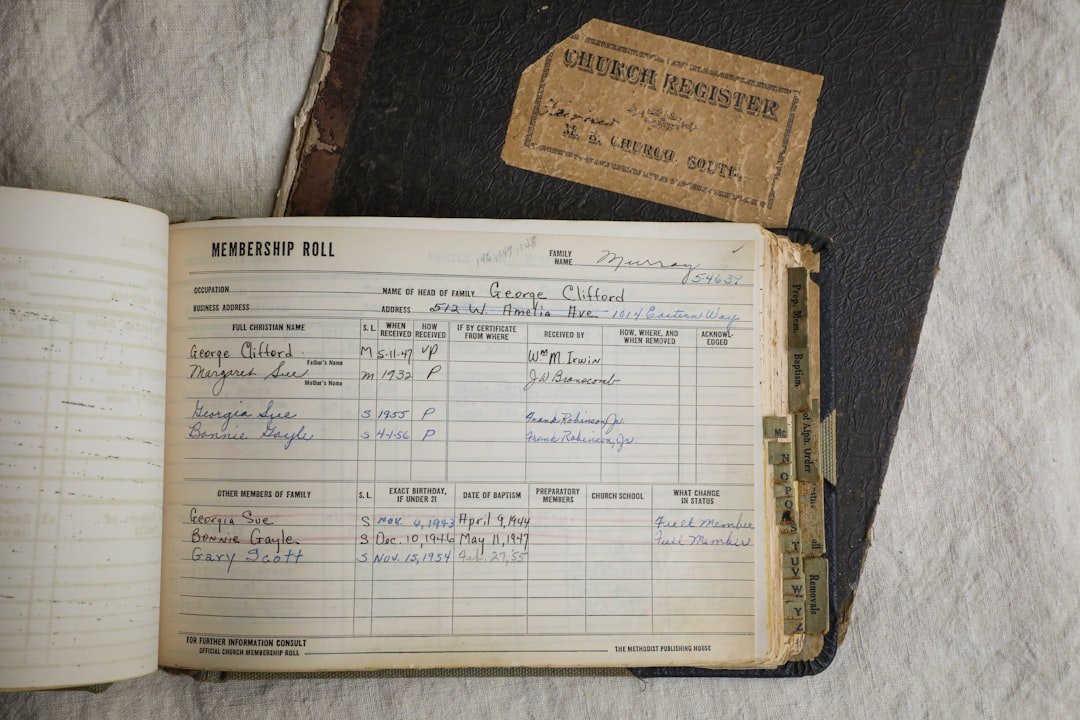 CHURCH REGISTER
M. E. CHURCH, SOUTH.
MEMBERSHIP ROLL
146, 147, 148
FAMILY NAME Murray
54639
OCCUPATION NAME OF HEAD OF FAMILY George Clifford
BUSINESS ADDRESS ADDRESS 512 W. Amelia Ave. - 1014 Eastern Way
FULL CHRISTIAN NAME S. L. WHEN RECEIVED HOW RECEIVED IF BY CERTIFICATE FROM WHERE RECEIVED BY HOW, WHERE, AND WHEN REMOVED ACKNOWL-EDGED
George Clifford M 5-11-47 VP Wm M Irwin
Father's Name
Margaret Sue M 1932 P J W Branscomb
Mother's Name
Georgia Sue S 1955 P Frank Robinson, Jr.
Bonnie Gayle S 4-1-56 P Frank Robinson, Jr.
OTHER MEMBERS OF FAMILY S. L. EXACT BIRTHDAY, IF UNDER 21 DATE OF BAPTISM PREPARATORY MEMBERS CHURCH SCHOOL WHAT CHANGE IN STATUS
Georgia Sue S Nov. 4, 1943 April 9, 1944 Full Member
Bonnie Gayle S Dec. 10, 1946 May 11, 1947 Full Member
Gary Scott S Nov. 15, 1954 Feb. 27, '55
FOR FURTHER INFORMATION CONSULT
OFFICIAL CHURCH MEMBERSHIP ROLL THE METHODIST PUBLISHING HOUSE
Prep. Mem.
Baptism
of Alph. Order
Removals
Mc
N
O
P
S
T
U
V
W
Y
Z